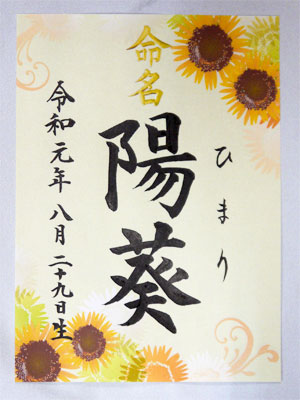 命名
ひまり
陽葵
令和元年八月二十九日生